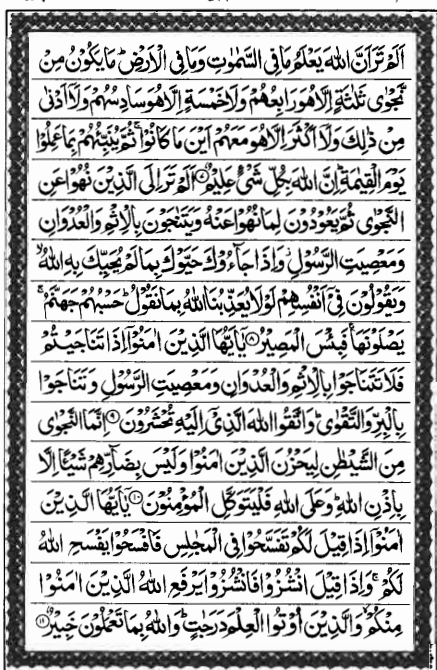 اَلَمْ تَرَ اَنَّ اللّٰهَ يَعْلَمُ مَا فِی السَّمٰوٰتِ وَمَا فِی الْاَرْضِ ؕ مَا يَكُوْنُ مِنْ
نَّجْوٰی ثَلٰثَةٍ اِلَّا هُوَ رَابِعُهُمْ وَلَا خَمْسَةٍ اِلَّا هُوَ سَادِسُهُمْ وَلَاۤ اَدْنٰی
مِنْ ذٰلِكَ وَلَاۤ اَكْثَرَ اِلَّا هُوَ مَعَهُمْ اَيْنَ مَا كَانُوْا ۚ ثُمَّ يُنَبِّئُهُمْ بِمَا عَمِلُوْا
يَوْمَ الْقِيٰمَةِ ؕ اِنَّ اللّٰهَ بِكُلِّ شَیْءٍ عَلِيْمٌ ﴿۷﴾ اَلَمْ تَرَ اِلَی الَّذِيْنَ نُهُوْا عَنِ
النَّجْوٰی ثُمَّ يَعُوْدُوْنَ لِمَا نُهُوْا عَنْهُ وَيَتَنٰجَوْنَ بِالْاِثْمِ وَالْعُدْوَانِ
وَمَعْصِيَتِ الرَّسُوْلِ ۫ وَاِذَا جَآءُوْكَ حَيَّوْكَ بِمَا لَمْ يُحَيِّكَ بِهِ اللّٰهُ ۙ
وَيَقُوْلُوْنَ فِیْۤ اَنْفُسِهِمْ لَوْلَا يُعَذِّبُنَا اللّٰهُ بِمَا نَقُوْلُ ؕ حَسْبُهُمْ جَهَنَّمُ ۚ
يَصْلَوْنَهَا ۚ فَبِئْسَ الْمَصِيْرُ ﴿۸﴾ يٰۤاَيُّهَا الَّذِيْنَ اٰمَنُوْۤا اِذَا تَنَاجَيْتُمْ
فَلَا تَتَنَاجَوْا بِالْاِثْمِ وَالْعُدْوَانِ وَمَعْصِيَتِ الرَّسُوْلِ وَتَنَاجَوْا
بِالْبِرِّ وَالتَّقْوٰی ؕ وَاتَّقُوا اللّٰهَ الَّذِیْۤ اِلَيْهِ تُحْشَرُوْنَ ﴿۹﴾ اِنَّمَا النَّجْوٰی
مِنَ الشَّيْطٰنِ لِيَحْزُنَ الَّذِيْنَ اٰمَنُوْا وَلَيْسَ بِضَآرِّهِمْ شَيْئًا اِلَّا
بِاِذْنِ اللّٰهِ ؕ وَعَلَی اللّٰهِ فَلْيَتَوَكَّلِ الْمُؤْمِنُوْنَ ﴿۱۰﴾ يٰۤاَيُّهَا الَّذِيْنَ
اٰمَنُوْۤا اِذَا قِيْلَ لَكُمْ تَفَسَّحُوْا فِی الْمَجٰلِسِ فَافْسَحُوْا يَفْسَحِ اللّٰهُ
لَكُمْ ۚ وَاِذَا قِيْلَ انْشُزُوْا فَانْشُزُوْا يَرْفَعِ اللّٰهُ الَّذِيْنَ اٰمَنُوْا
مِنْكُمْ ۙ وَالَّذِيْنَ اُوْتُوا الْعِلْمَ دَرَجٰتٍ ؕ وَاللّٰهُ بِمَا تَعْمَلُوْنَ خَبِيْرٌ ﴿۱۱﴾